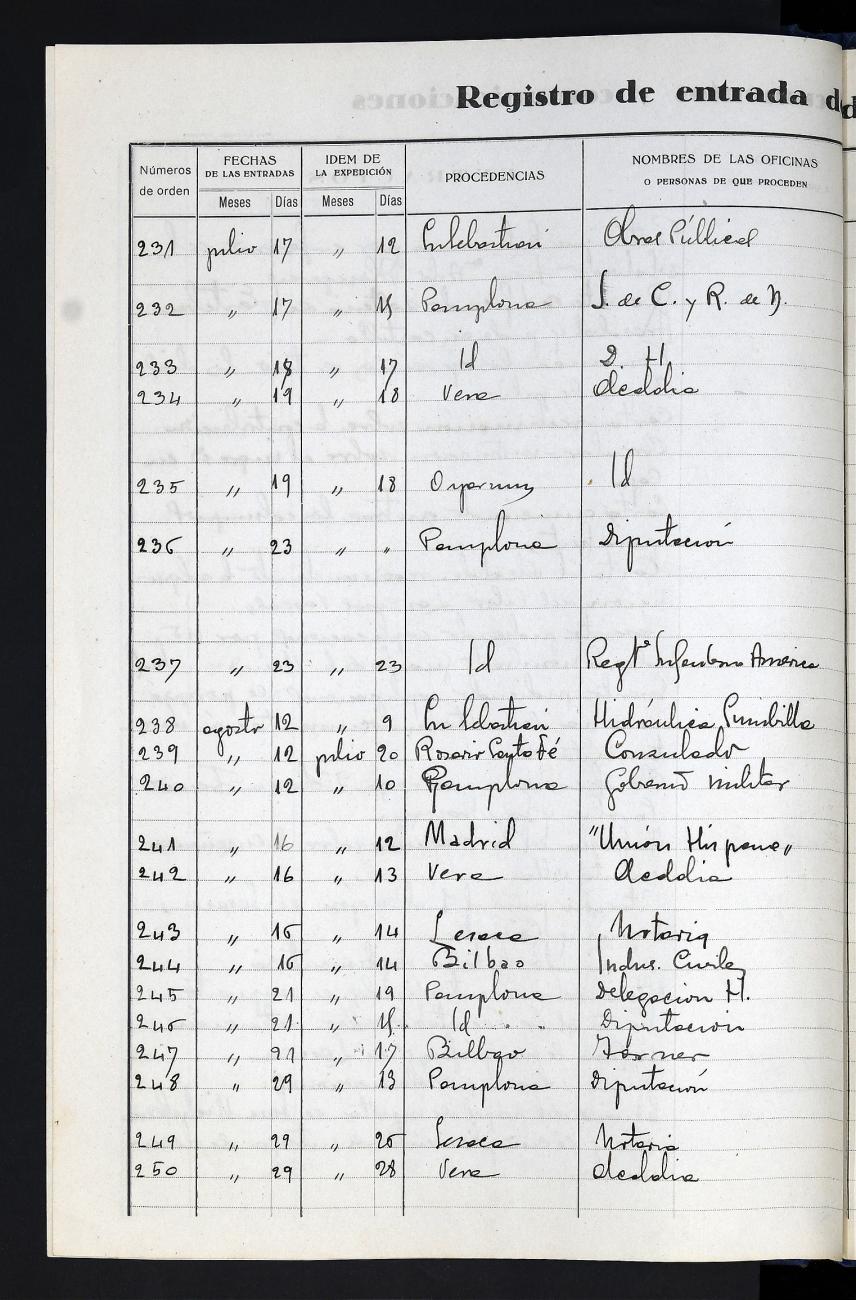 Registro de entrada d
Números de orden FECHAS DE LAS ENTRADAS IDEM DE LA EXPEDICIÓN PROCEDENCIAS NOMBRES DE LAS OFICINAS O PERSONAS DE QUE PROCEDEN
Meses Días Meses Días
231 julio 17 " 12 Obras Públicas
232 " 17 " 15 Pamplona J. de C. y R. de N.
233 " 18 " 17 Id D. H.
234 " 19 " 18 Vera Alcaldia
235 " 19 " 18 Oyarzun Id
236 " 23 " " Pamplona Diputación
237 " 23 " 23 Id Regtº Infanteria America
238 agosto 12 " 9 Hidráulica Sumbilla
239 " 12 julio 20 Rosario Santa Fé Consulado
240 " 12 " 10 Pamplona Gobierno militar
241 " 16 " 12 Madrid "Unión Hispana"
242 " 16 " 13 Vera Alcaldia
243 " 16 " 14 Lesaca Notaria
244 " 16 " 14 Bilbao Indus.
245 " 21 " 19 Pamplona Delegacion H.
246 " 21 " 15 Id Diputación
247 " 21 " 17 Bilbao
248 " 29 " 13 Pamplona Diputación
249 " 29 " 26 Lesaca Notaria
250 " 29 " 28 Vera Alcaldia